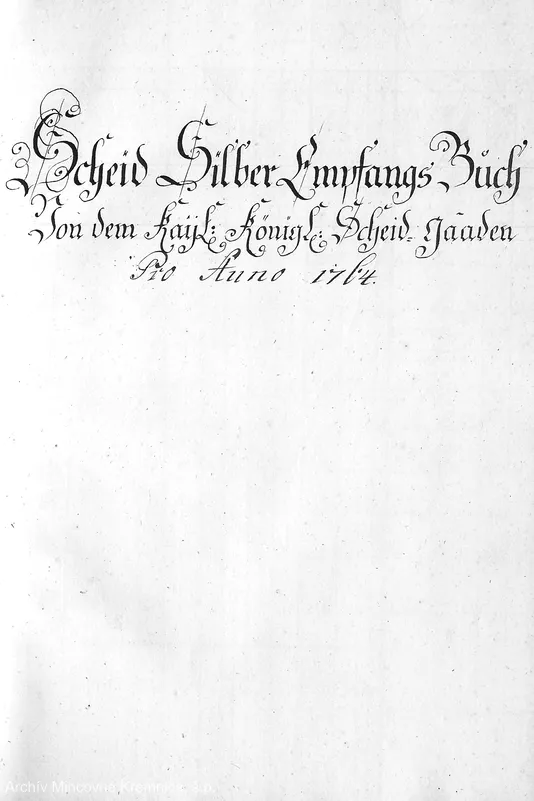 Scheid Silber Empfangs Buch
Von dem Kayl: Königl: Scheid-Gaaden
Pro Anno 1764.
Archív Mincovne Kremnica, š.p.